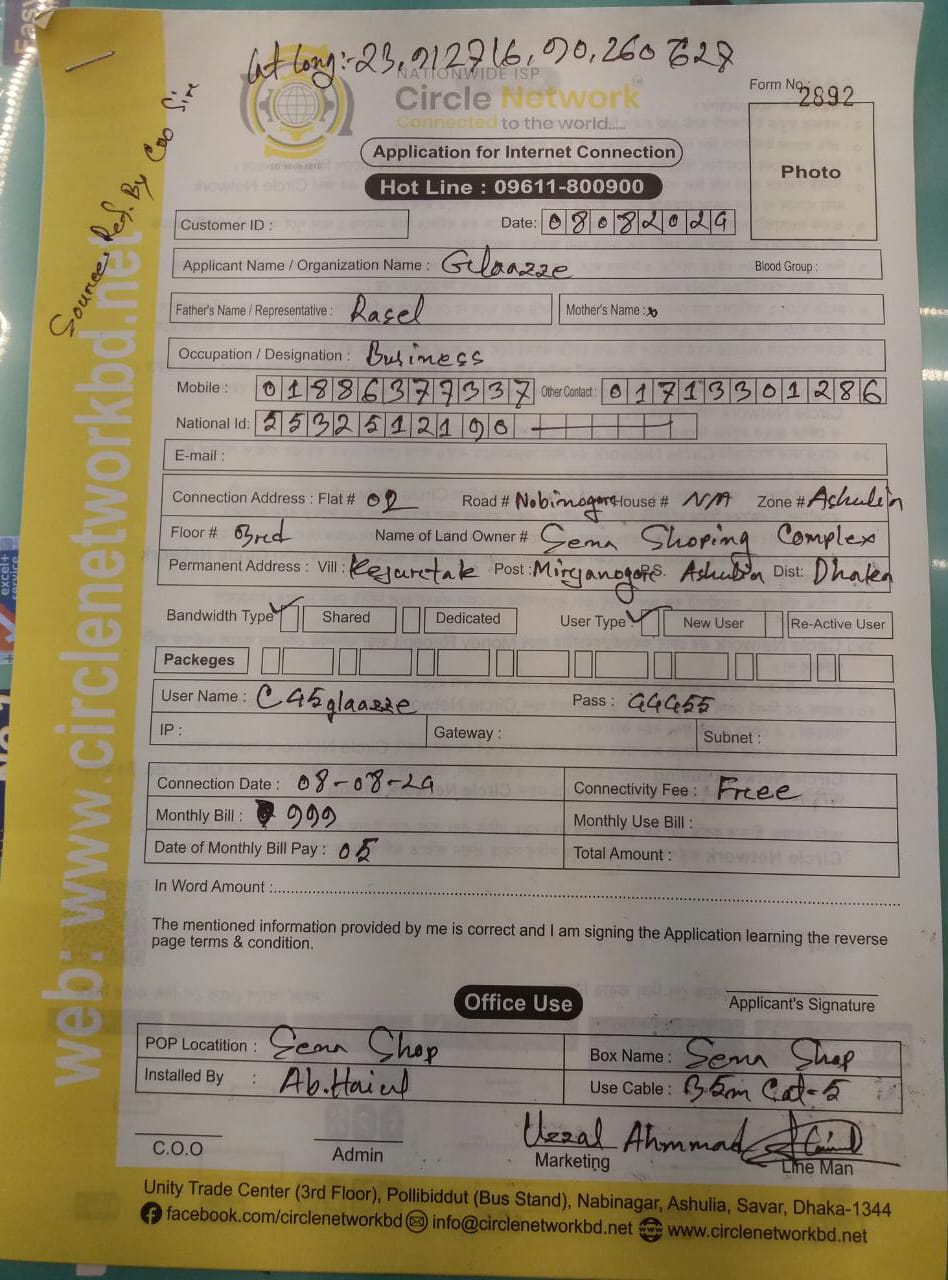 Lat Long:-23.912716, 90.260628
NATIONWIDE ISP
Circle Network
Connected to the world.....
Form No.: 2892
Photo
Application for Internet Connection
Hot Line : 09611-800900
Source, Ref. By Coo Sir
web: www.circlenetworkbd.net
Customer ID :
Date: 08082024
Applicant Name / Organization Name : Glaazze Blood Group :
Father's Name / Representative : Rasel Mother's Name :
Occupation / Designation : Business
Mobile : 01886377337 Other Contact : 01713301286
National Id: 5532512190
E-mail :
Connection Address : Flat # 02 Road # Nobinogor House # N/A Zone # Ashulia
Floor # 3rd Name of Land Owner # Sena Shoping Complex
Permanent Address : Vill : Post : Mirzanogor P.S. Ashulia Dist: Dhaka
Bandwidth Type Shared Dedicated User Type : New User Re-Active User
Packeges
User Name : C45glaazze Pass : 44455
IP : Gateway : Subnet :
Connection Date : 08-08-24 Connectivity Fee : Free
Monthly Bill : 999 Monthly Use Bill :
Date of Monthly Bill Pay : 05 Total Amount :
In Word Amount :
The mentioned information provided by me is correct and I am signing the Application learning the reverse
page terms & condition.
Applicant's Signature
Office Use
POP Locatition : Sena Shop Box Name : Sena Shop
Installed By : Use Cable : Cat-5
Uzzal Ahmmad
C.O.O Admin Marketing Line Man
Unity Trade Center (3rd Floor), Pollibiddut (Bus Stand), Nabinagar, Ashulia, Savar, Dhaka-1344
facebook.com/circlenetworkbd info@circlenetworkbd.net www.circlenetworkbd.net